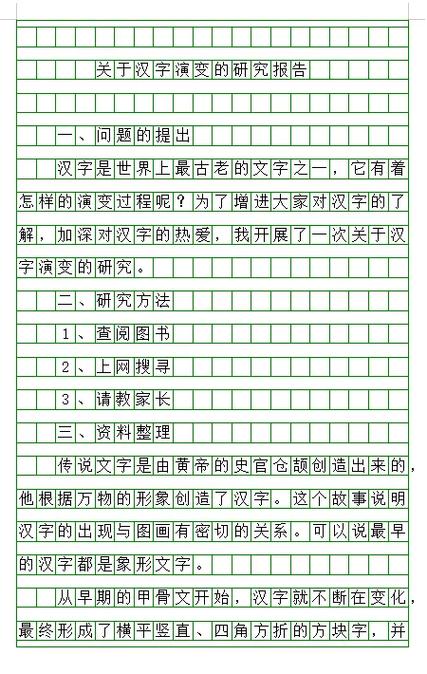 关于汉字演变的研究报告
一、问题的提出
汉字是世界上最古老的文字之一，它有着
怎样的演变过程呢？为了增进大家对汉字的了
解，加深对汉字的热爱，我开展了一次关于汉
字演变的研究。
二、研究方法
1、查阅图书
2、上网搜寻
3、请教家长
三、资料整理
传说文字是由黄帝的史官仓颉创造出来的，
他根据万物的形象创造了汉字。这个故事说明
汉字的出现与图画有密切的关系。可以说最早
的汉字都是象形文字。
从早期的甲骨文开始，汉字就不断在变化，
最终形成了横平竖直、四角方折的方块字，并